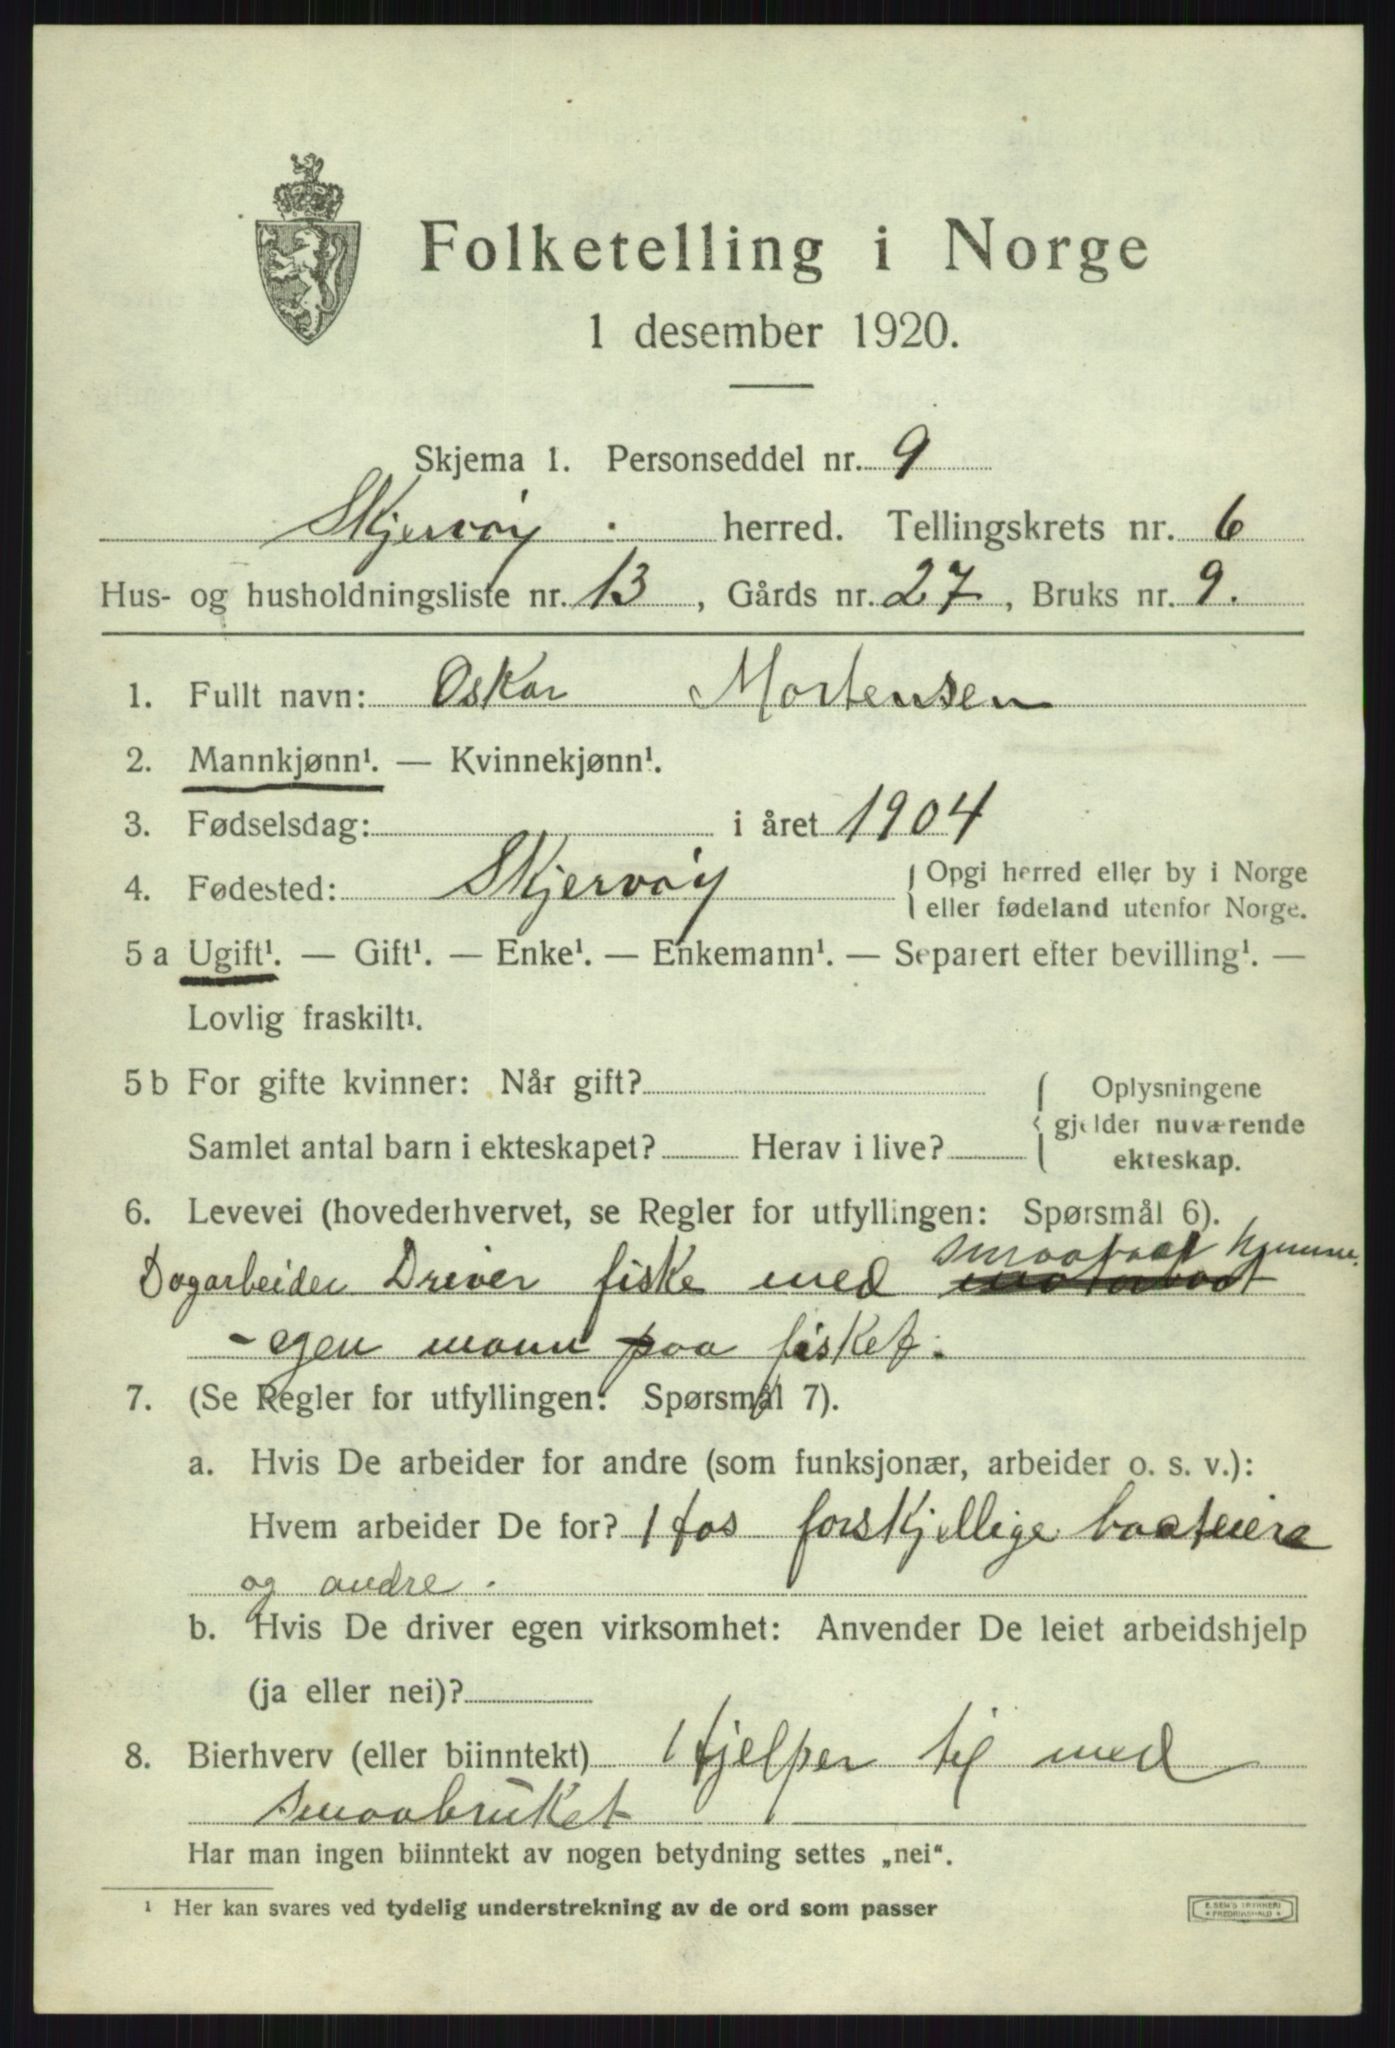 Folketelling i Norge
1 desember 1920.
Skjema 1. Personseddel nr. 9
Skjervøy . herred. Tellingskrets nr. 6
Hus- og husholdningsliste nr. 13, Gårds nr. 27, Bruks nr. 9.
1. Fullt navn: Oskar Mortensen
2. Mannkjønn¹. — Kvinnekjønn¹.
3. Fødselsdag: i året 1904
4. Fødested: Skjervøy { Opgi herred eller by i Norge
eller fødeland utenfor Norge.
5 a Ugift¹. — Gift¹. — Enke¹. — Enkemann¹. — Separert efter bevilling¹. —
Lovlig fraskilt¹.
5 b For gifte kvinner: Når gift? { Oplysningene
gjelder nuværende
Samlet antal barn i ekteskapet? Herav i live? ekteskap.
6. Levevei (hovederhvervet, se Regler for utfyllingen: Spørsmål 6).
smaabaat hjemme.
Dagarbeider Driver fiske med motorbaat
- egen mann paa fisket.
7. (Se Regler for utfyllingen: Spørsmål 7).
a. Hvis De arbeider for andre (som funksjonær, arbeider o. s. v.):
Hvem arbeider De for? Hos forskjellige baateiere
og andre.
b. Hvis De driver egen virksomhet: Anvender De leiet arbeidshjelp
(ja eller nei)?
8. Bierhverv (eller biinntekt) Hjelper til med
smaabruket
Har man ingen biinntekt av nogen betydning settes „nei“.
¹ Her kan svares ved tydelig understrekning av de ord som passer
E. SEM'S TRYKKERI
* FREDRIKSHALD *